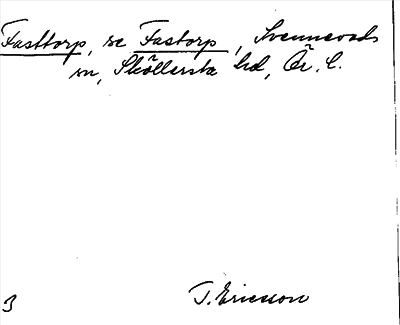 Fasttorp, se Fastorp, Svennevads
sn, Sköllersta hd, Ör. l.
T. Ericsson
3